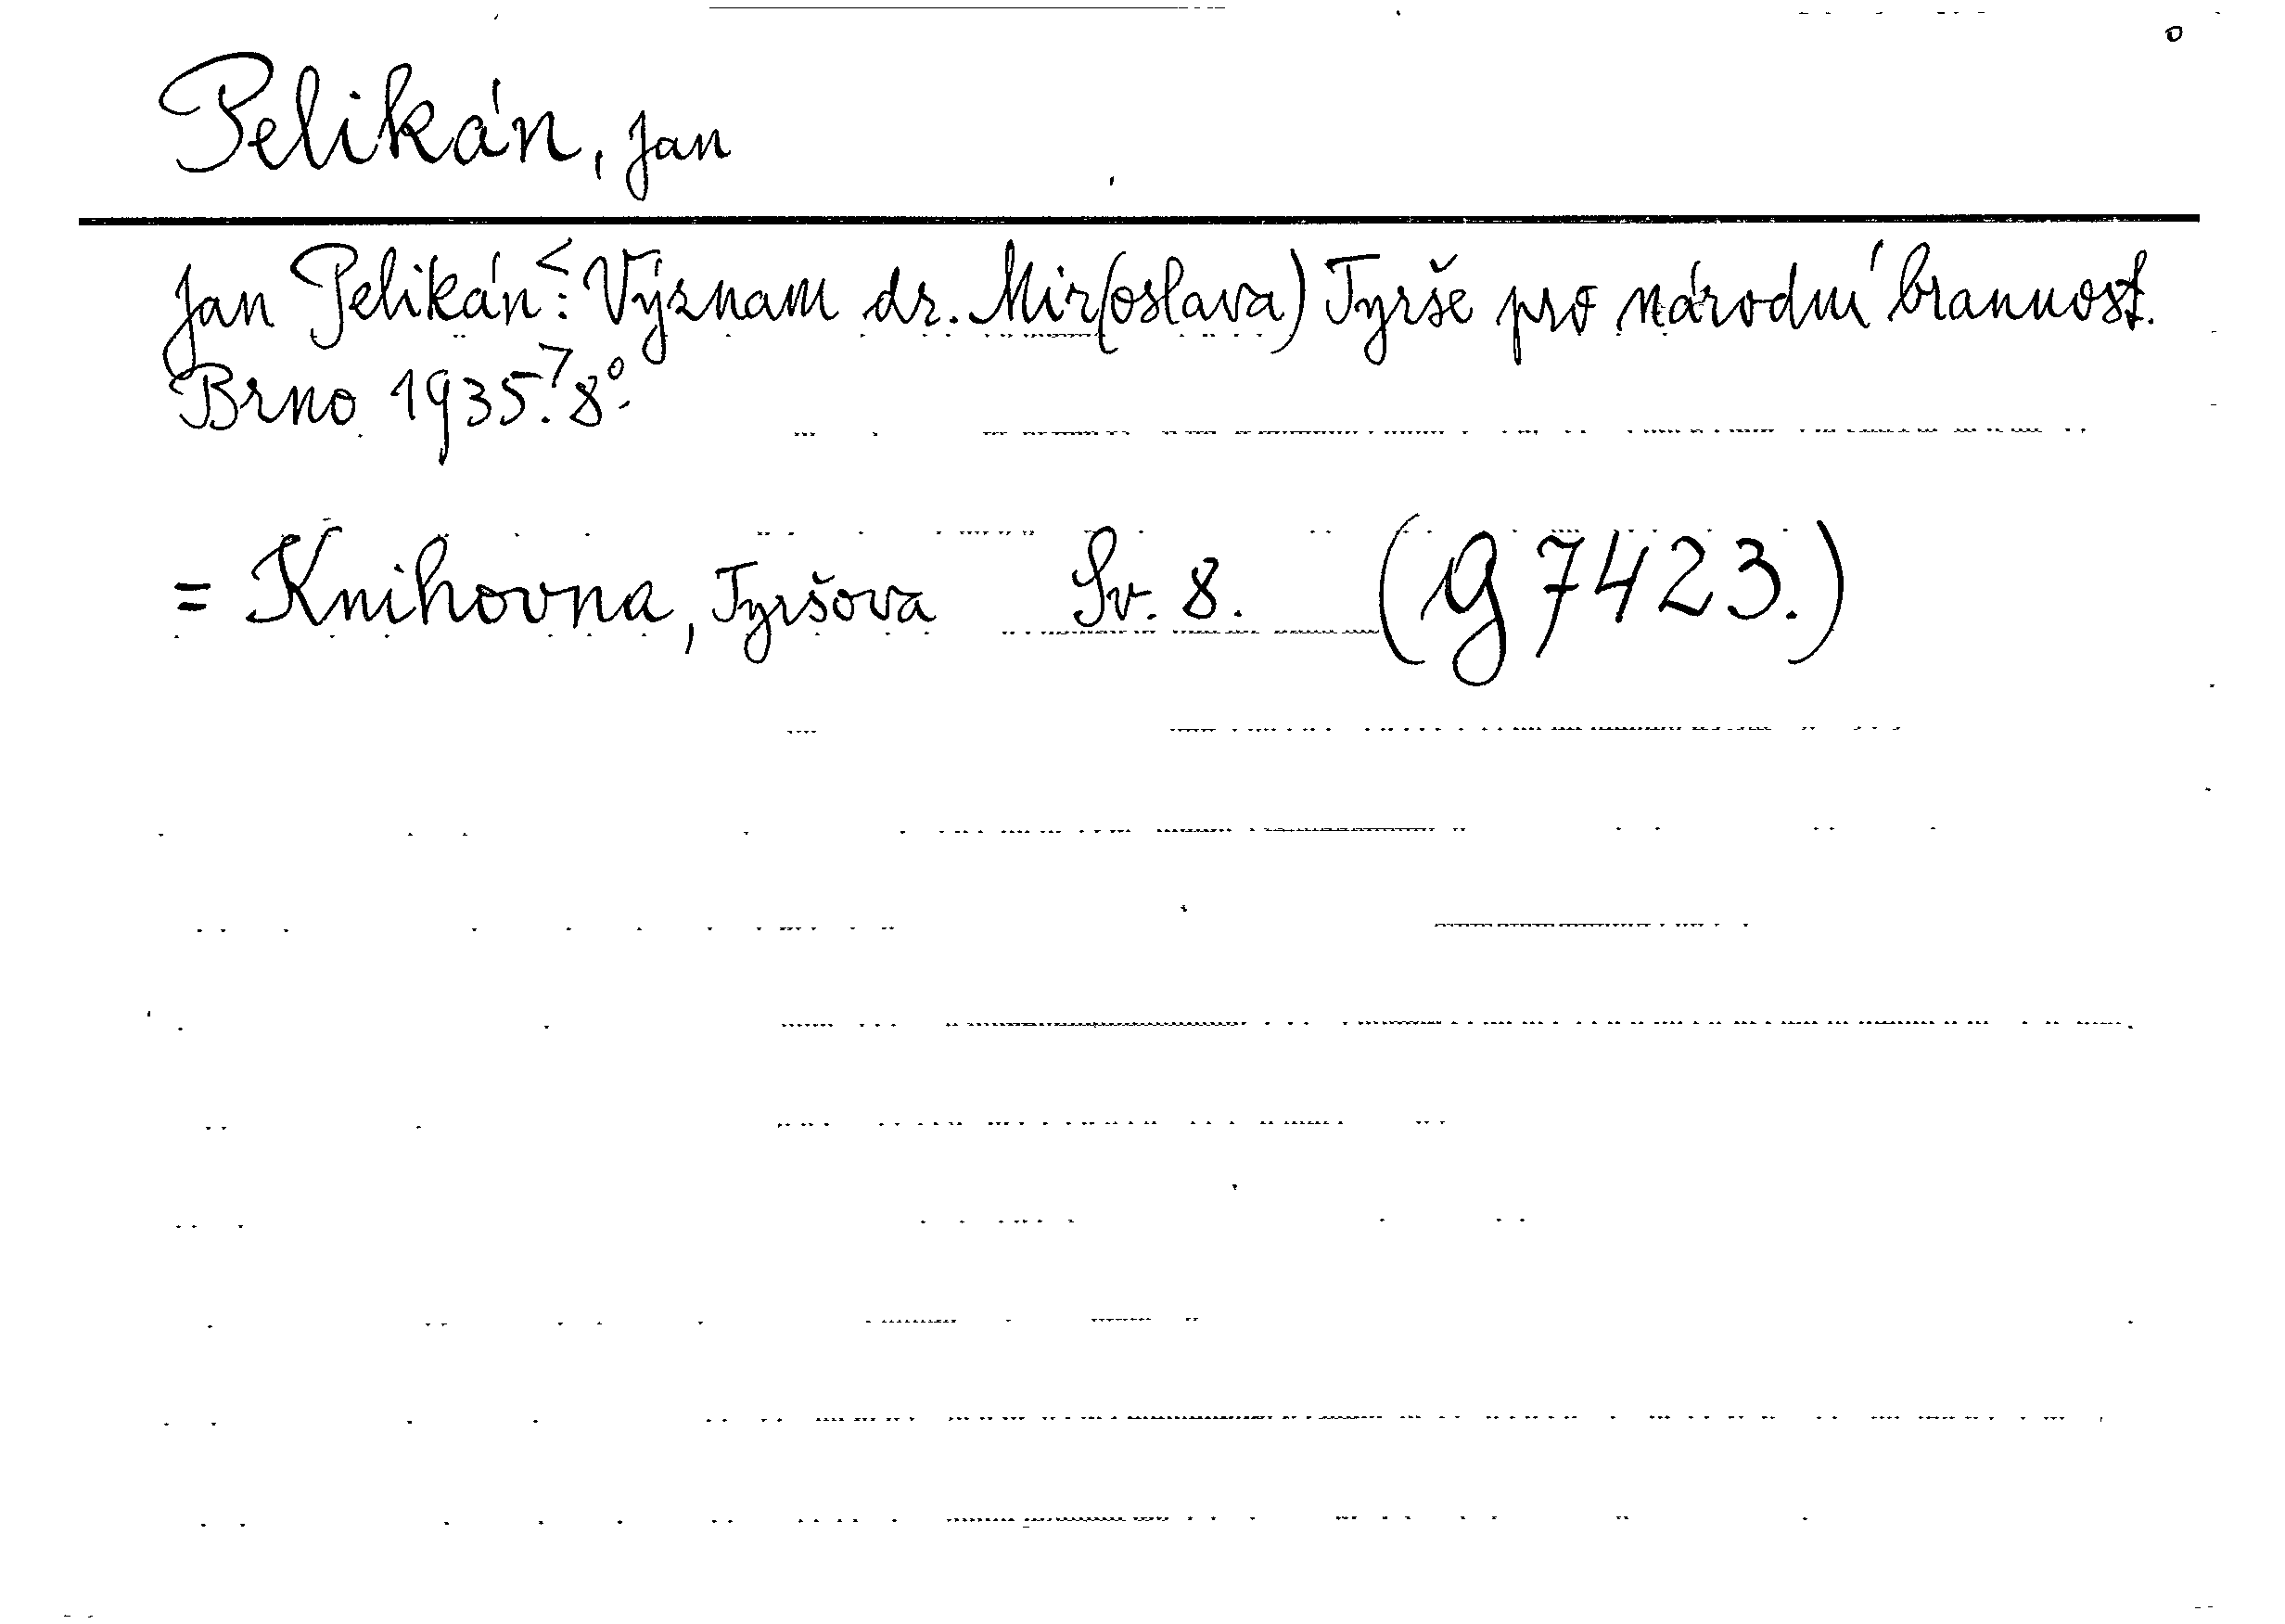 Pelikán, Jan
Jan Pelikán<: Význam dr. Mir(oslava) Tyrše pro národní brannost.
Brno 1935.7 8°.
= Knihovna, Tyršova Sv. 8. (g 7423.)